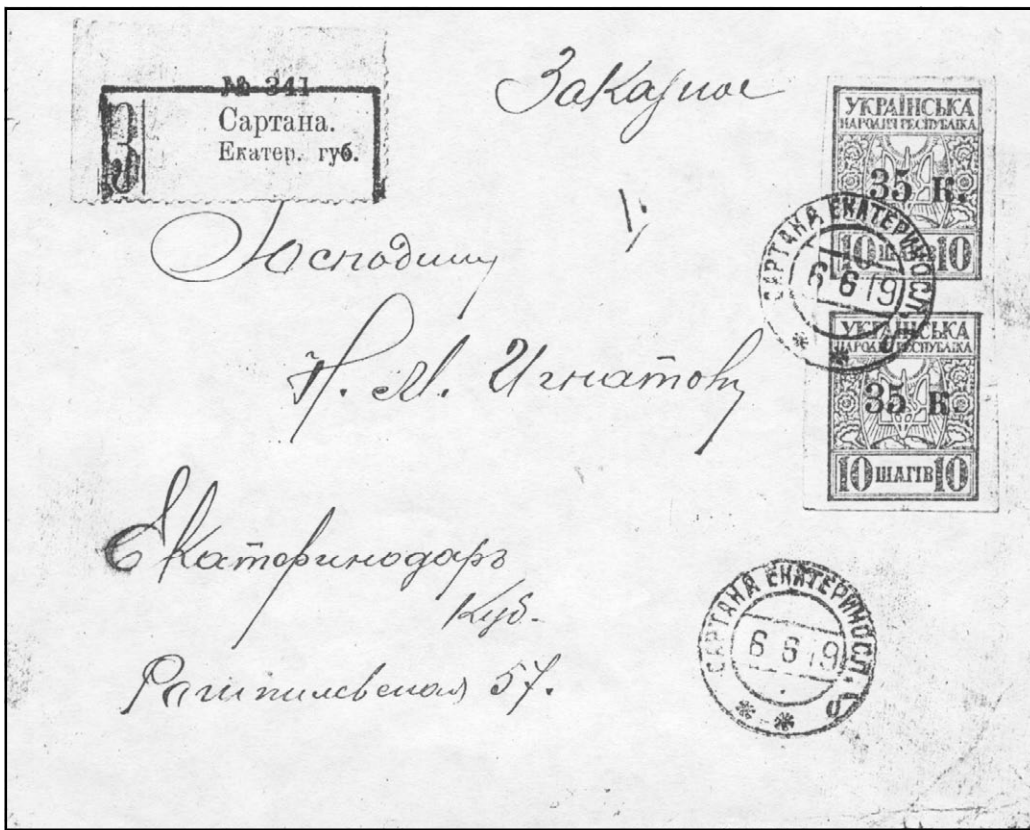 Заказное
З
№ 341
Сартана.
Екатер. губ.
УКРАЇНСЬКА
НАРОДНЯ РЕСПУБЛІКА
35 К.
10 ШАГІВ 10
САРТАНА ЕКАТЕРИНОСЛ.
6 6 19
УКРАЇНСЬКА
НАРОДНЯ РЕСПУБЛІКА
35 К.
10 ШАГІВ 10
Господину
Н. М. Игнатову
Екатеринодаръ
Куб.
Рашпилевская 57.
САРТАНА ЕКАТЕРИНОСЛ.
6 6 19